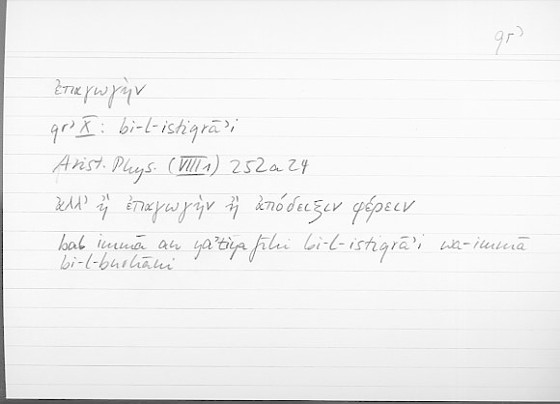 qrʾ
ἐπαγωγὴν
qrʾ X: bi-l-istiqrāʾi
Arist. Phys. (VIII 1) 252a24
ἀλλ’ ἢ ἐπαγωγὴν ἢ ἀπόδειξιν φέρειν
bal immā an yaʾtiya fīhi bi-l-istiqrāʾi wa-immā
bi-l-burhāni